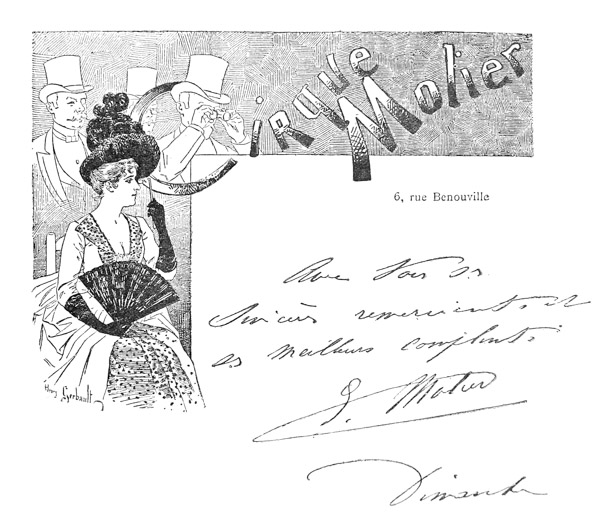 Cirque Molier
6, rue Benouville
Avec tous ses
Sincères remerciements et
ses meilleurs compliments
E. Molier
Dimanche
Henry Gerbault